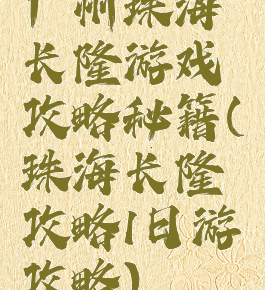 广州珠海
长隆游戏
攻略秘籍(
珠海长隆
攻略1日游
攻略)